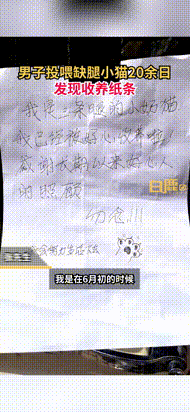 男子投喂缺腿小猫20余日
发现收养纸条
我是三条腿的小奶猫
我已经被好心收养啦!
感谢大部以来好心人
的照顾
勿念!!!
白鹿
我是在6月初的时候